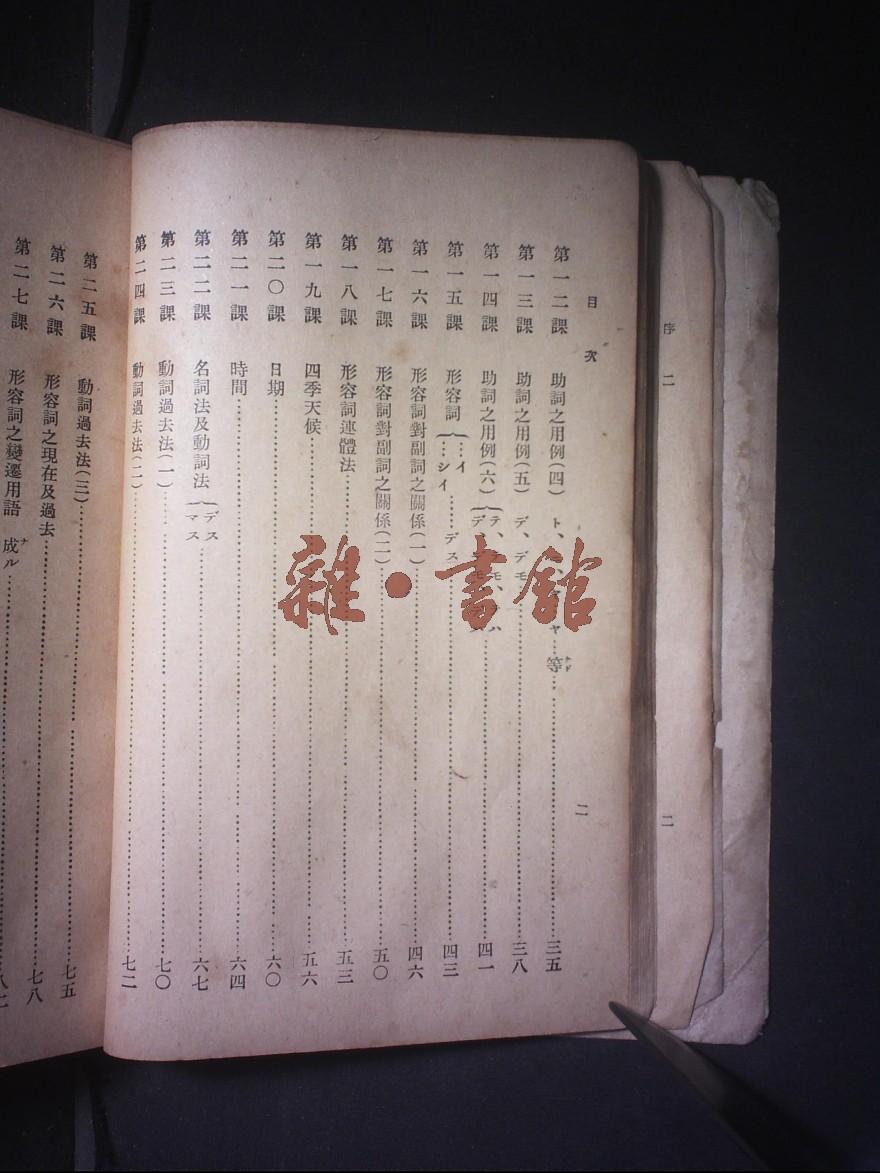 序 二
二
目 次
二
第一二課 助詞之用例(四) ト、ヤ…等ナド………三五
第一三課 助詞之用例(五) デ、デモ………三八
第一四課 助詞之用例(六) {テ、デ、………四一
第一五課 形容詞 {…イ …シイ ……デス………四三
第一六課 形容詞對副詞之關係(一)………四六
第一七課 形容詞對副詞之關係(二)………五〇
第一八課 形容詞連體法………五三
第一九課 四季天候………五六
第二〇課 日期………六〇
第二一課 時間………六四
第二二課 名詞法及動詞法 {デス マス………六七
第二三課 動詞過去法(一)………七〇
第二四課 動詞過去法(二)………七二
第二五課 動詞過去法(三)………七五
第二六課 形容詞之現在及過去………七八
第二七課 形容詞之變遷用語 成ナル………
雜·書館